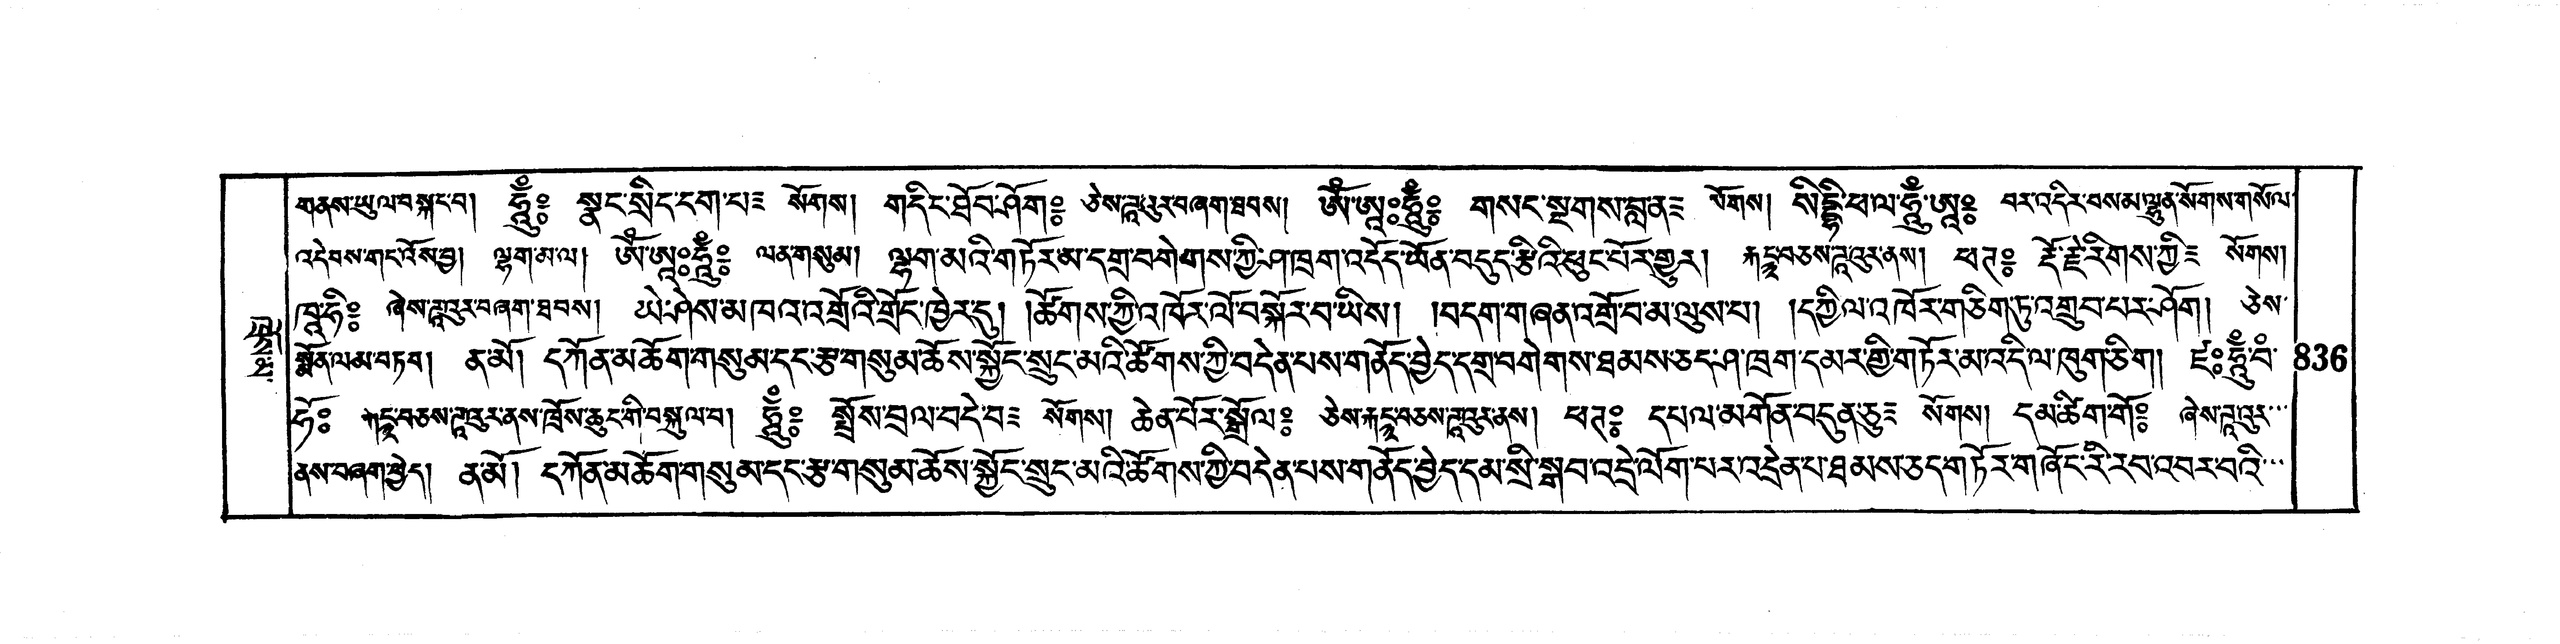 གནས་ཡུལ་བསྐང་བ། ཧཱུྃ༔ སྣང་སྲིད་དག་པ༴ སོགས། གདིང་ཐོབ་ཤོག༔ ཅེས་རྡཱ་ཕུར་བཞག་ཐབས། ཨོཾ་ཨཱཿཧཱུྃ༔ གསང་སྔགས་བླན༴ སོགས། སིདྡྷི་ཕ་ལ་ཧཱུྃ་ཨཱ༔ བར་འདིར་བསམ་ལྷུན་སོགས་གསོལ་
འདེབས་གང་འོས་བྱ། ལྷག་མ་ལ། ཨོཾ་ཨཱཿཧཱུྃ༔ ལན་གསུམ། ལྷག་མའི་གཏོར་མ་དགྲ་བགེགས་ཀྱི་ཤ་ཁྲག་འདོད་ཡོན་བདུད་རྩིའི་ཕུང་པོར་གྱུར། རྐང་དུང་བཅས་རྡཱ་འུར་ནས། ཕཊ༔ རྡོ་རྗེ་རིགས་ཀྱི༴ སོགས།
ཁཱ་ཧི༔ ཞེས་རྡཱ་འུར་བཞག་ཐབས། ཡེ་ཤེས་མཁའ་འགྲོའི་གྲོང་ཁྱེར་དུ། །ཚོགས་ཀྱི་འཁོར་ལོ་བསྐོར་བ་ཡིས། །བདག་གཞན་འགྲོ་བ་མ་ལུས་པ། །དཀྱིལ་འཁོར་གཅིག་ཏུ་འགྲུབ་པར་ཤོག །ཅེས་
སྨོན་ལམ་བཏབ། ན་མོ། དཀོན་མཆོག་གསུམ་དང་རྩ་གསུམ་ཆོས་སྐྱོང་སྲུང་མའི་ཚོགས་ཀྱི་བདེན་པས་གནོད་བྱེད་དགྲ་བགེགས་ཐམས་ཅད་ཤ་ཁྲག་དམར་གྱི་གཏོར་མ་འདི་ལ་ཁུག་ཅིག ཛཿཧཱུྃ་བཾ་ 836
ཧོ༔ རྐང་དུང་བཅས་རྡཱ་འུར་ནས་ཁྲོས་ཆུང་གི་བསྐུལ་བ། ཧཱུྃ༔ སྤྲོས་བྲལ་བདེ་བ༴ སོགས། ཆེན་པོར་སྒྲོལ༔ ཅེས་རྐང་དུང་བཅས་རྡཱ་འུར་ནས། ཕཊ༔ དཔལ་མགོན་བདུན་ཅུ༴ སོགས། དམ་ཚིག་གོ༔ ཞེས་རྡཱ་འུར་
ནས་བཞག་བྱེད། ན་མོ། དཀོན་མཆོག་གསུམ་དང་རྩ་གསུམ་ཆོས་སྐྱོང་སྲུང་མའི་ཚོགས་ཀྱི་བདེན་པས་གནོད་བྱེད་དམ་སྲི་སྒྲབ་འདྲེ་ལོག་པར་འདྲེན་པ་ཐམས་ཅད་གཏོར་གཞོང་རི་རབ་འབར་བའི་